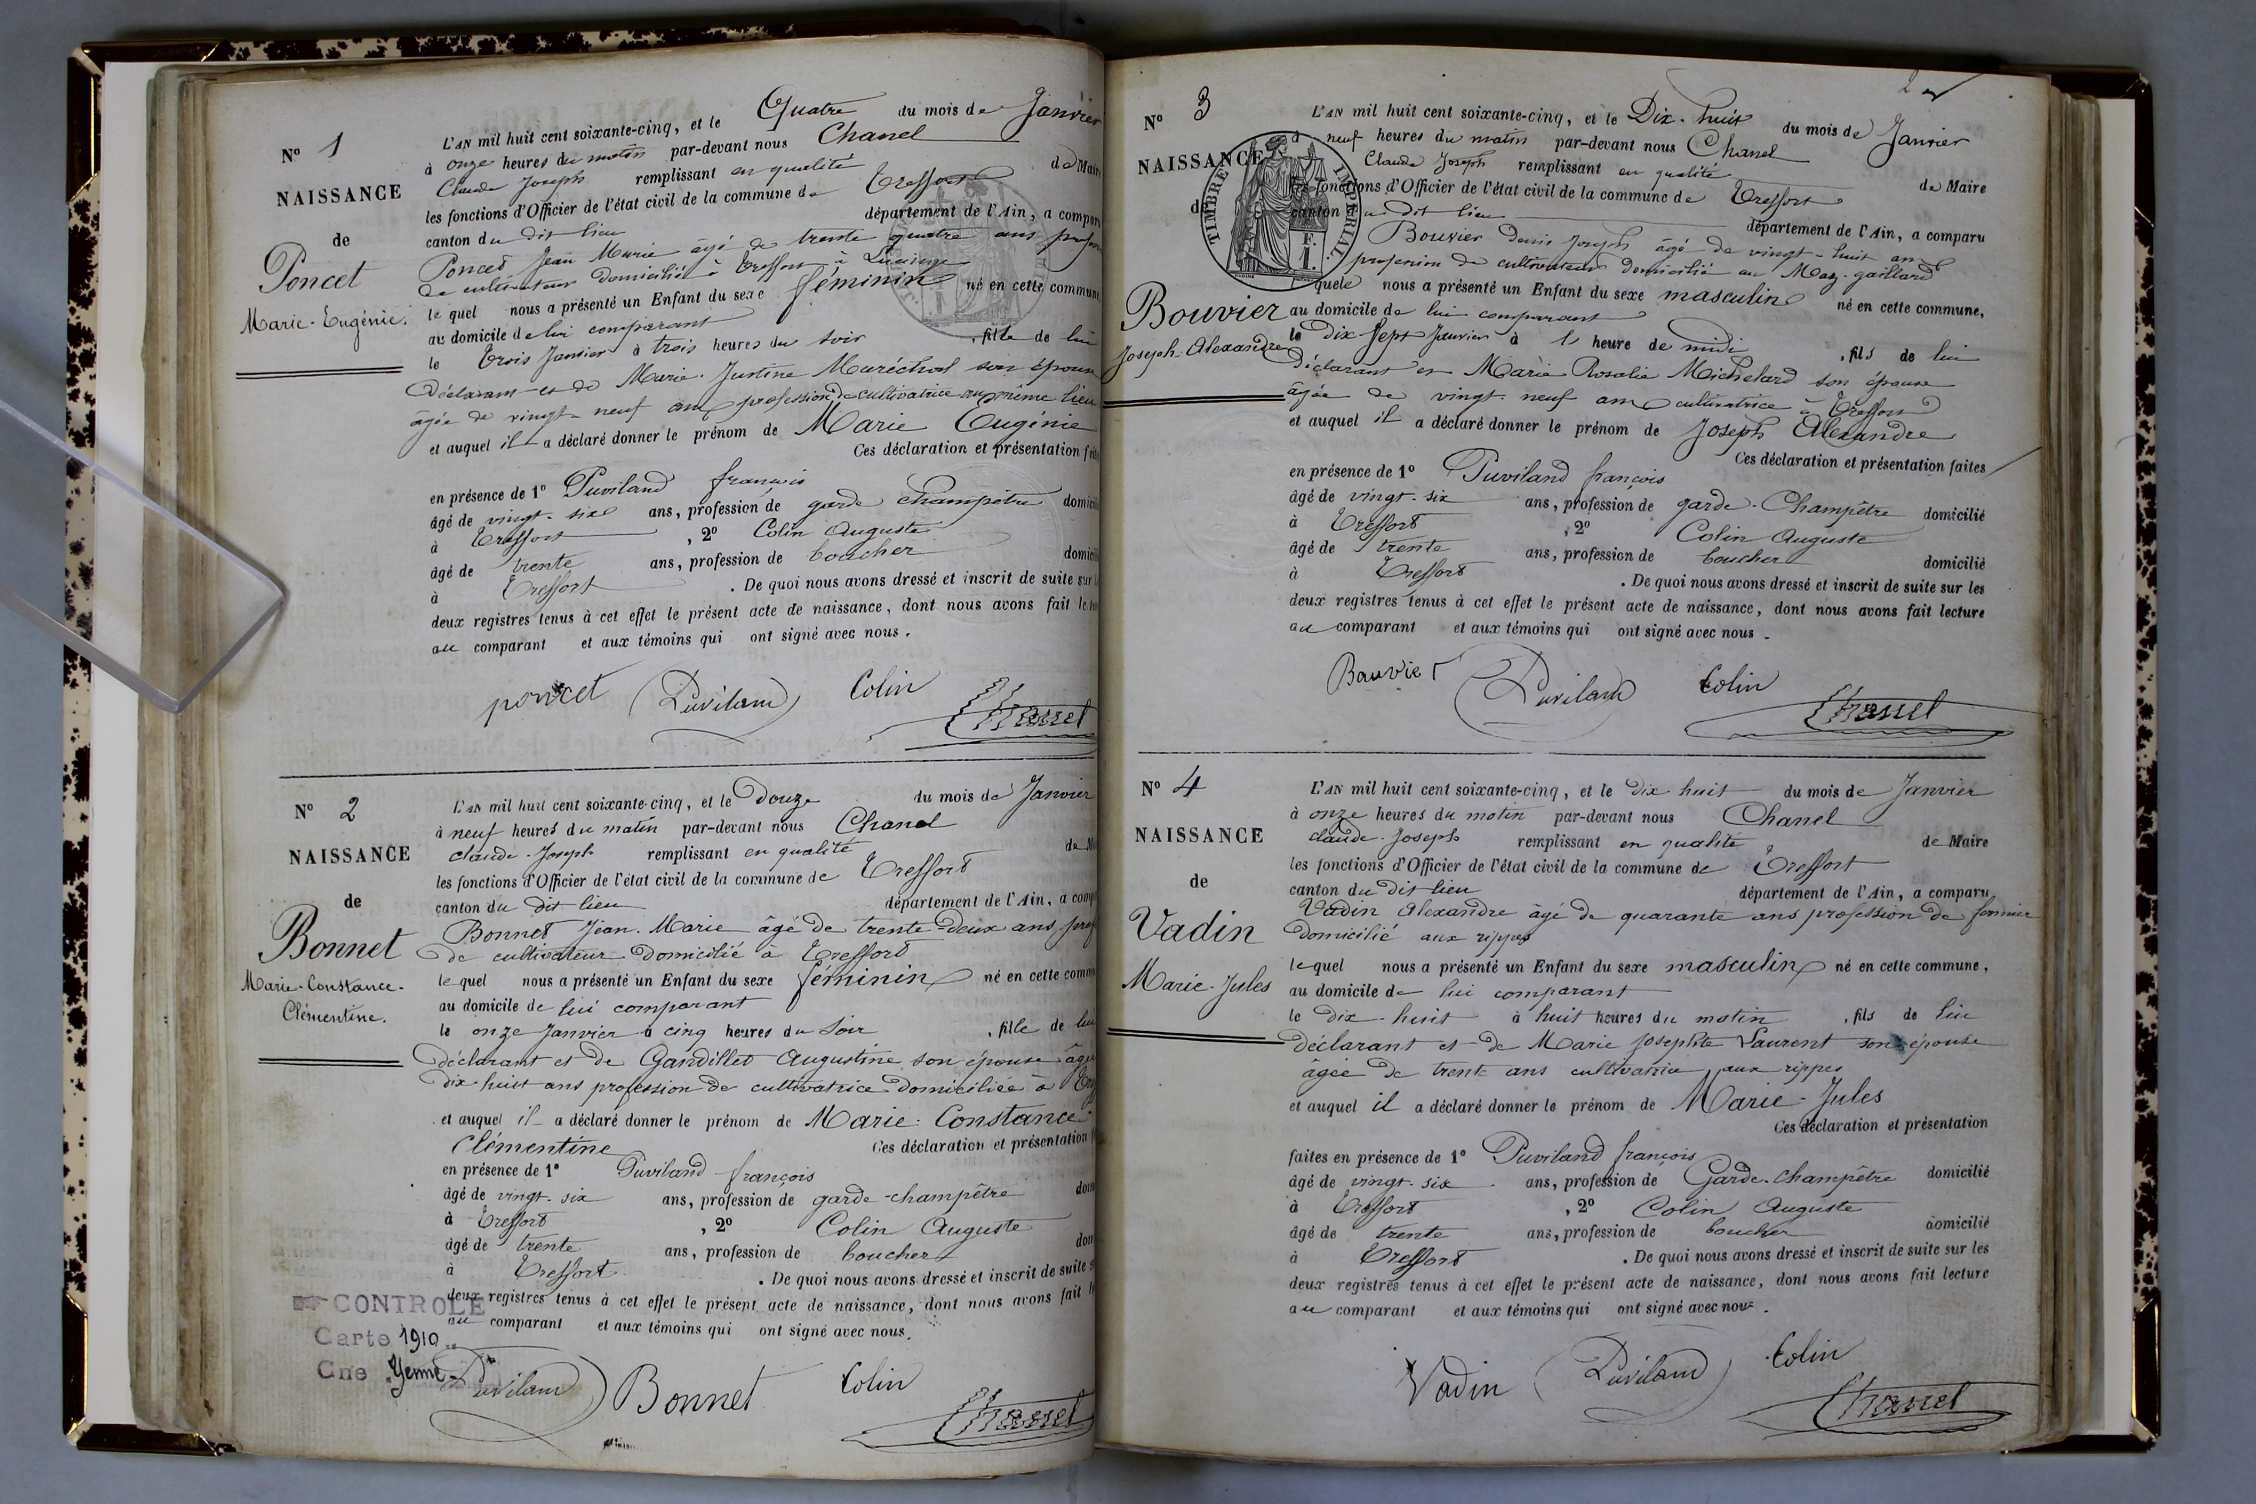 N° 1
NAISSANCE
de
Poncet
Marie-Eugénie.
L'AN mil huit cent soixante-cinq, et le Quatre du mois de Janvier
à onze heures du matin par-devant nous Chanel
Claude Joseph remplissant en qualité de Maire
les fonctions d'Officier de l'état civil de la commune de Treffort
canton du dit lieu département de l'Ain, a comparu
Poncet Jean Marie âgé de trente quatre ans
de cultivateur domicilié à Treffort à
le quel nous a présenté un Enfant du sexe féminin né en cette commune
au domicile de lui comparant
le trois Janvier à trois heures du soir , fille de lui
déclarant et de Marie-Justine Maréchal son épouse
âgée de vingt-neuf ans profession de cultivatrice au même lieu
et auquel il a déclaré donner le prénom de Marie Eugénie
Ces déclaration et présentation
en présence de 1° Puviland françois
âgé de vingt-six ans, profession de garde champêtre
à Treffort , 2° Colin Auguste
âgé de trente ans, profession de boucher
à Treffort . De quoi nous avons dressé et inscrit de suite sur
deux registres tenus à cet effet le présent acte de naissance, dont nous avons fait
au comparant et aux témoins qui ont signé avec nous.
poncet Puviland Colin Chanel
N° 2
NAISSANCE
de
Bonnet
Marie-Constance-
Clémentine.
L'AN mil huit cent soixante-cinq, et le Douze du mois de Janvier
à neuf heures du matin par-devant nous Chanel
claude-Joseph remplissant en qualité de
les fonctions d'Officier de l'état civil de la commune de Treffort
canton du dit lieu département de l'Ain, a
Bonnet Jean-Marie âgé de trente-deux ans,
de cultivateur domicilié à Treffort
le quel nous a présenté un Enfant du sexe féminin né en cette
au domicile de lui comparant
le onze Janvier à cinq heures du soir , fille de lui
déclarant et de Gandillet Augustine son épouse
dix huit ans profession de cultivatrice domiciliée à
et auquel il a déclaré donner le prénom de Marie-Constance-
Clémentine Ces déclaration et présentation
en présence de 1° Puviland françois
âgé de vingt-six ans, profession de garde-champêtre
à Treffort , 2° Colin Auguste
âgé de trente ans, profession de boucher
à Treffort . De quoi nous avons dressé et inscrit de suite
deux registres tenus à cet effet le présent acte de naissance, dont nous avons fait
au comparant et aux témoins qui ont signé avec nous.
CONTROLE
Carte 1910
Cne Yenne
Puviland Bonnet Colin Chanel
2
N° 3
NAISSANCE
de
Bouvier
Joseph-Alexandre
TIMBRE IMPERIAL.
F.
1.
L'AN mil huit cent soixante-cinq, et le Dix-huit du mois de Janvier
à neuf heures du matin par-devant nous Chanel
Claude Joseph remplissant en qualité de Maire
les fonctions d'Officier de l'état civil de la commune de Treffort
canton du dit lieu département de l'Ain, a comparu
Bouvier Denis Joseph âgé de vingt-huit ans
profession de cultivateur domicilié au Maz-gaillard
quel nous a présenté un Enfant du sexe masculin né en cette commune,
au domicile de lui comparant
le Dix Sept Janvier à 1 heure de midi , fils de lui
déclarant et Marie Rosalie Michelard son épouse
âgée de vingt-neuf ans cultivatrice à Treffort
et auquel il a déclaré donner le prénom de Joseph Alexandre
Ces déclaration et présentation faites
en présence de 1° Puviland françois
âgé de vingt-six ans, profession de garde-Champêtre domicilié
à Treffort , 2° Colin Auguste
âgé de trente ans, profession de boucher domicilié
à Treffort . De quoi nous avons dressé et inscrit de suite sur les
deux registres tenus à cet effet le présent acte de naissance, dont nous avons fait lecture
au comparant et aux témoins qui ont signé avec nous.
Bouvier Puviland Colin Chanel
N° 4
NAISSANCE
de
Vadin
Marie-Jules
L'AN mil huit cent soixante-cinq, et le dix huit du mois de Janvier
à onze heures du matin par-devant nous Chanel
claude-Joseph remplissant en qualité de Maire
les fonctions d'Officier de l'état civil de la commune de Treffort
canton du dit lieu département de l'Ain, a comparu
Vadin Alexandre âgé de quarante ans profession de fermier
domicilié aux rippes
le quel nous a présenté un Enfant du sexe masculin né en cette commune,
au domicile de lui comparant
le dix-huit à huit heures du matin , fils de lui
déclarant et de Marie Josephte Laurent son épouse
âgée de trente ans cultivatrice aux rippes
et auquel il a déclaré donner le prénom de Marie-Jules
Ces déclaration et présentation
faites en présence de 1° Puviland françois
âgé de vingt-six ans, profession de Garde-Champêtre domicilié
à Treffort , 2° Colin Auguste
âgé de trente ans, profession de boucher domicilié
à Treffort . De quoi nous avons dressé et inscrit de suite sur les
deux registres tenus à cet effet le présent acte de naissance, dont nous avons fait lecture
au comparant et aux témoins qui ont signé avec nous.
Vadin Puviland Colin Chanel